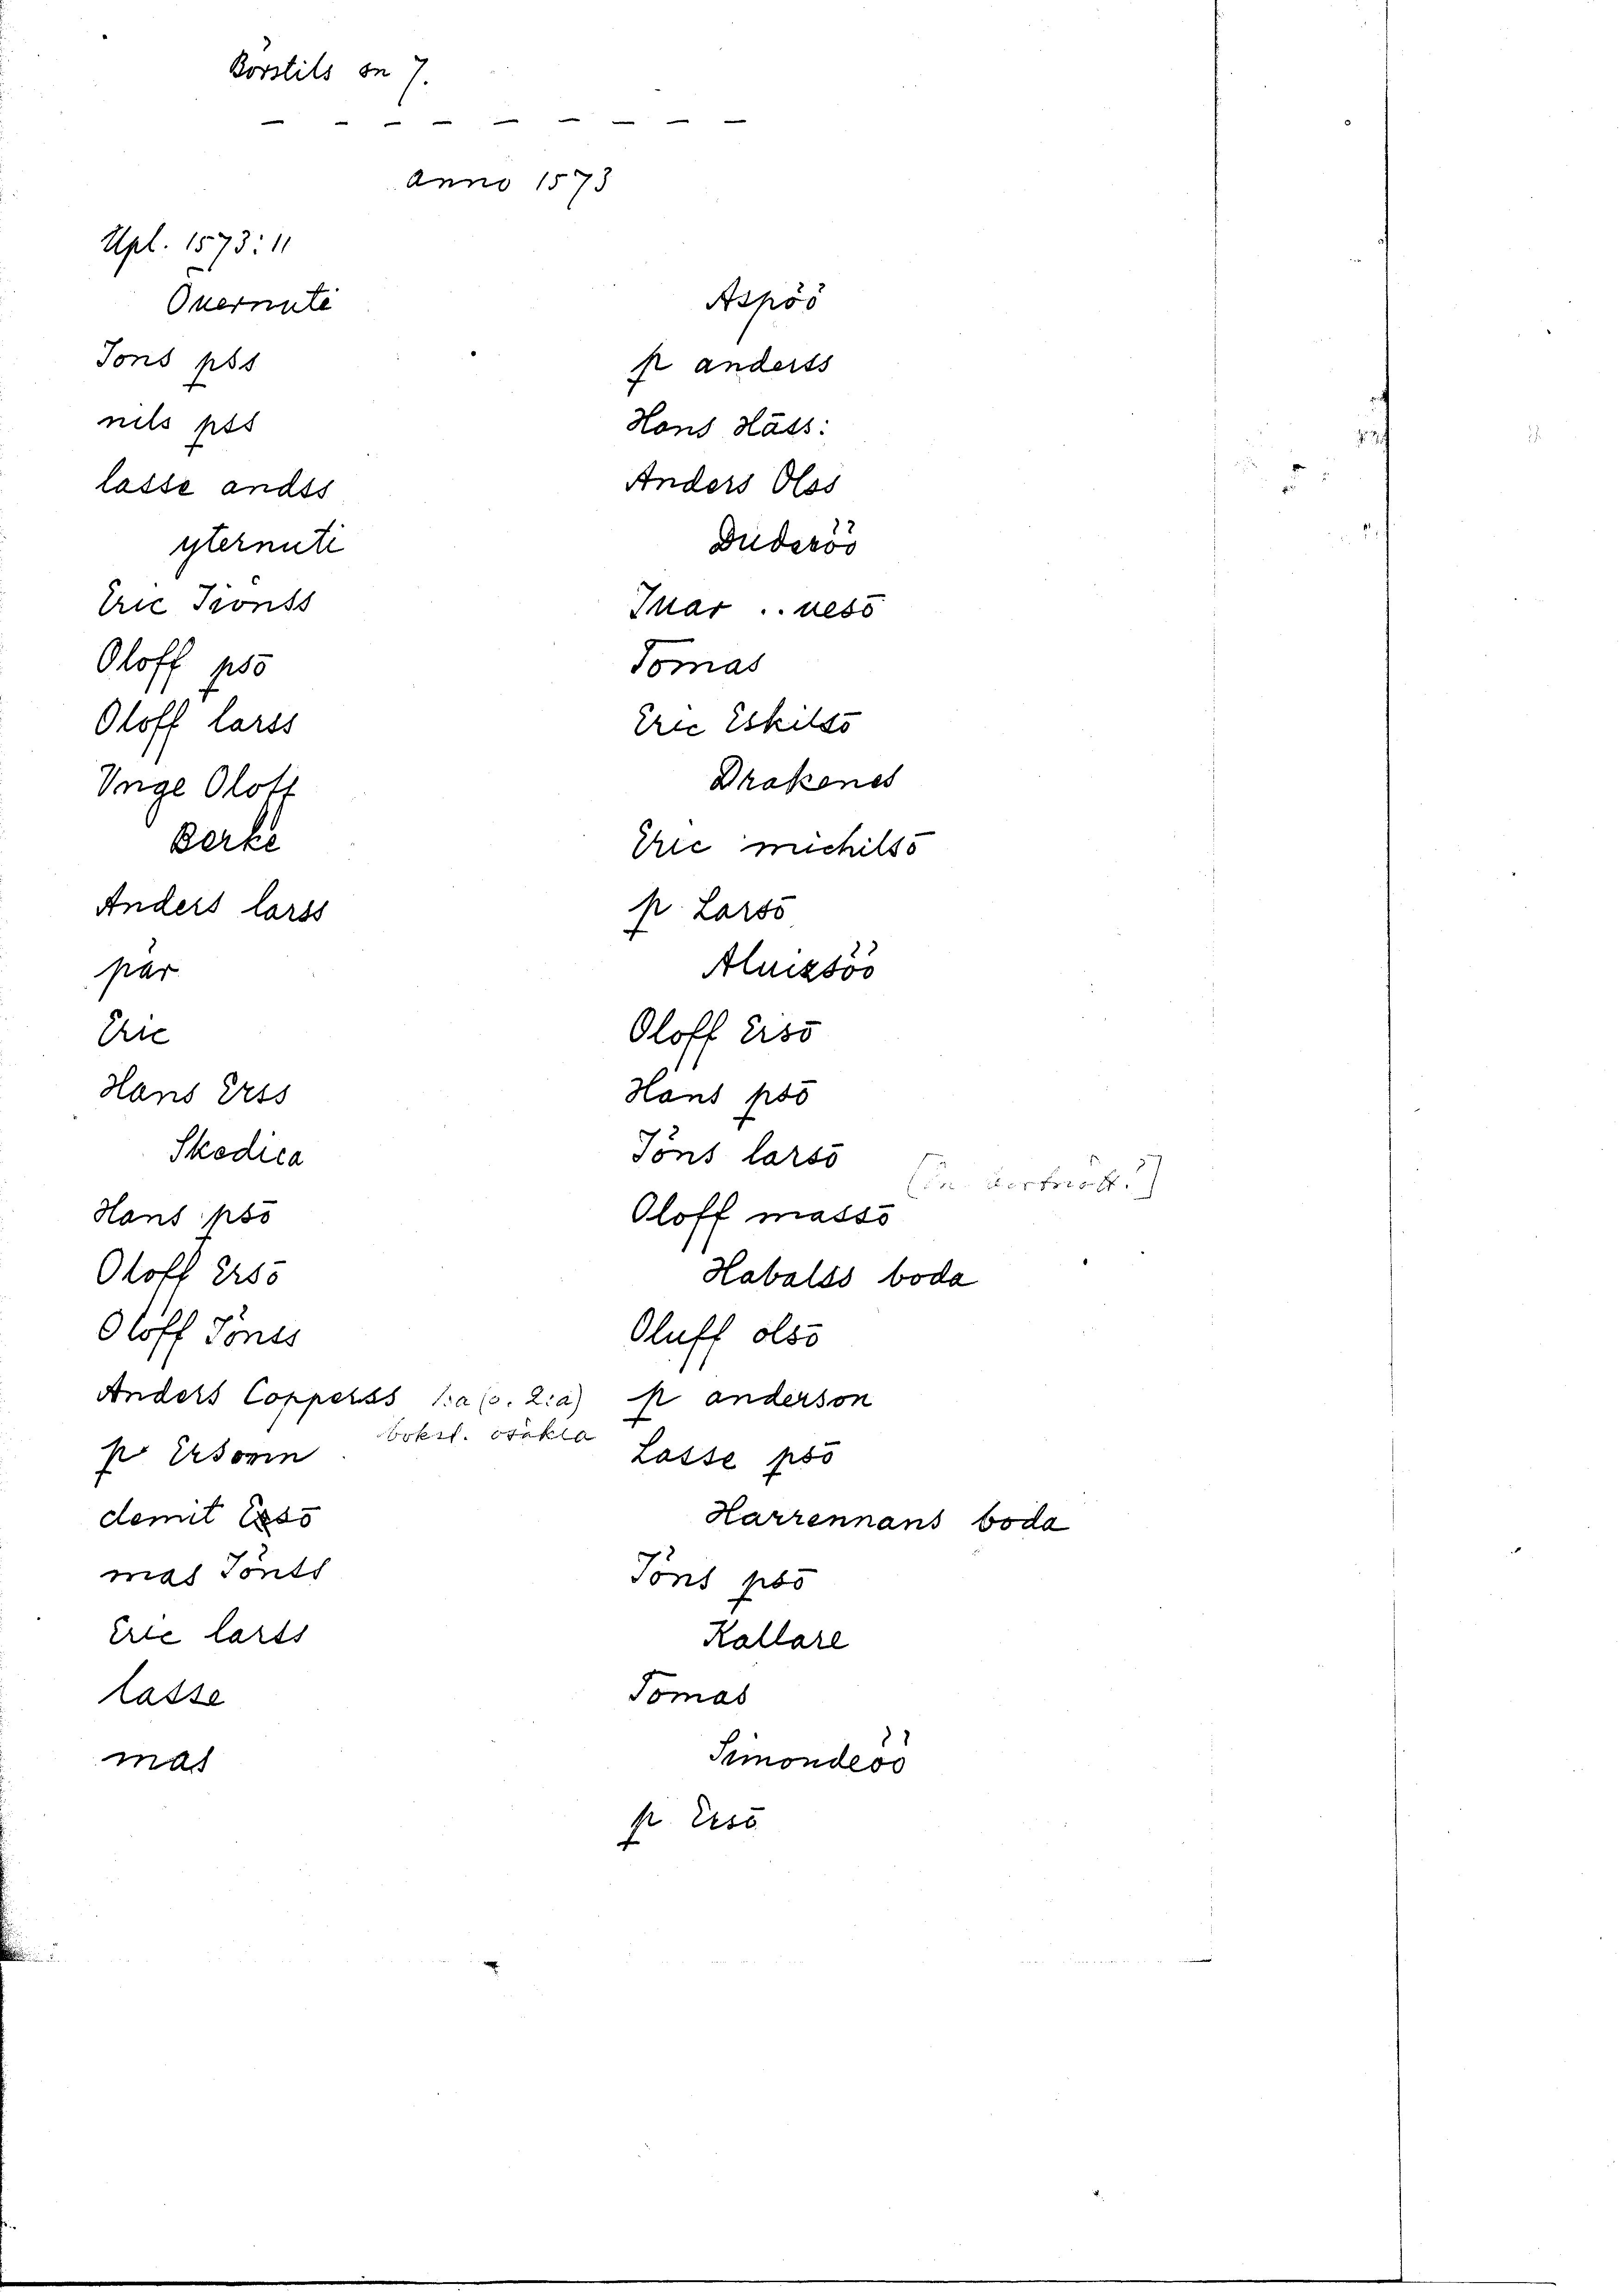 Börstils sn 7.
- - - - - - - - -
Anno 1573
Upl. 1573:11
Öuernuti
Jons pss
nils pss
lasse andss
yternuti
Eric Jionss
Oloff psō
Oloff larss
Vnge Oloff
Berke
Anders larss
pär
Eric
Hans Erss
Skedica
Hans psō
Oloff Ersō
Oloff Jönss
Anders Copperss 1:a (o. 2:a)
bokst. osäkra
p Ersonn
demit Ersō
mas Jönss
Eric larss
lasse
mas
Aspöö
p anderss
Hans Häss:
Anders Olss
Duderöö
Iuar ..uesō
Tomas
Eric Eskilsō
Drakenes
Eric michilsō
p Larsō
Aluizsöö
Oloff Ersō
Hans psō
Jöns larsō
Oloff massō
Habalss boda
Oluff olsō
p anderson
Lasse psō
Harrennans boda
Jöns psō
Kallare
Tomas
Simondeöö
p Ersō